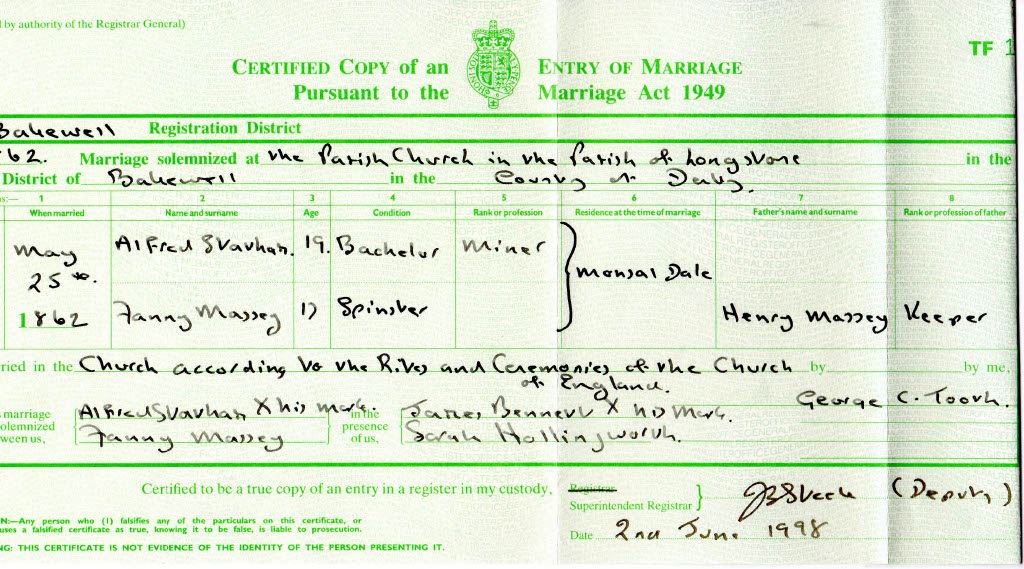 l by authority of the Registrar General)
TF 1
CERTIFIED COPY of an ENTRY OF MARRIAGE
Pursuant to the Marriage Act 1949
Bakewell Registration District
62. Marriage solemnized at the Parish Church in the Parish of Longstone in the
District of Bakewell in the County of Derby.
1 2 3 4 5 6 7 8
When married Name and surname Age Condition Rank or profession Residence at the time of marriage Father's name and surname Rank or profession of father
May 25th. 1862
Alfred Strathan. 19. Bachelor Miner
Monsal Dale
Fanny Massey 17 Spinster Henry Massey Keeper
ried in the Church according to the Rites and Ceremonies of the Church of England. by by me,
George C. Tooth.
marriage solemnized ween us,
Alfred Strathan X his mark.
Fanny Massey
in the presence of us,
James Bennett X his mark.
Sarah Hollingworth.
Certified to be a true copy of an entry in a register in my custody,
Registrar
Superintendent Registrar
(Deputy)
Date 2nd June 1998
N:—Any person who (1) falsifies any of the particulars on this certificate, or
uses a falsified certificate as true, knowing it to be false, is liable to prosecution.
NG: THIS CERTIFICATE IS NOT EVIDENCE OF THE IDENTITY OF THE PERSON PRESENTING IT.